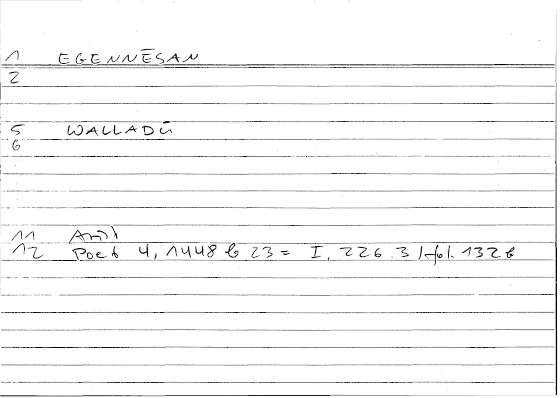 1 EGENNĒSAN
2
5 WALLADŪ
6
11 Arist
12 Poet 4, 1448 b 23 = I, 226.3 / fol. 132 b